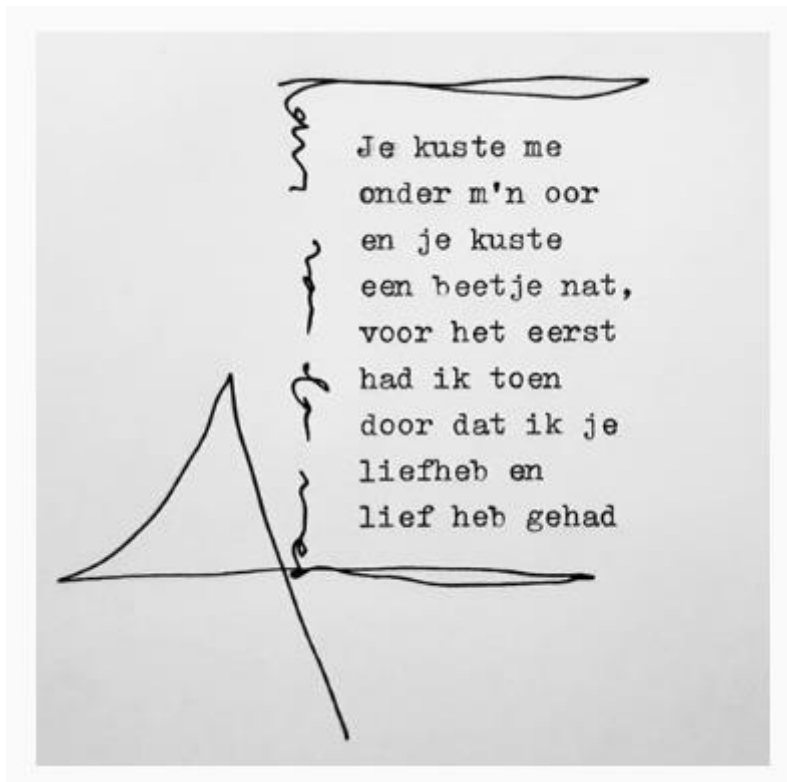 Je kuste me
onder m'n oor
en je kuste
een beetje nat,
voor het eerst
had ik toen
door dat ik je
liefheb en
lief heb gehad